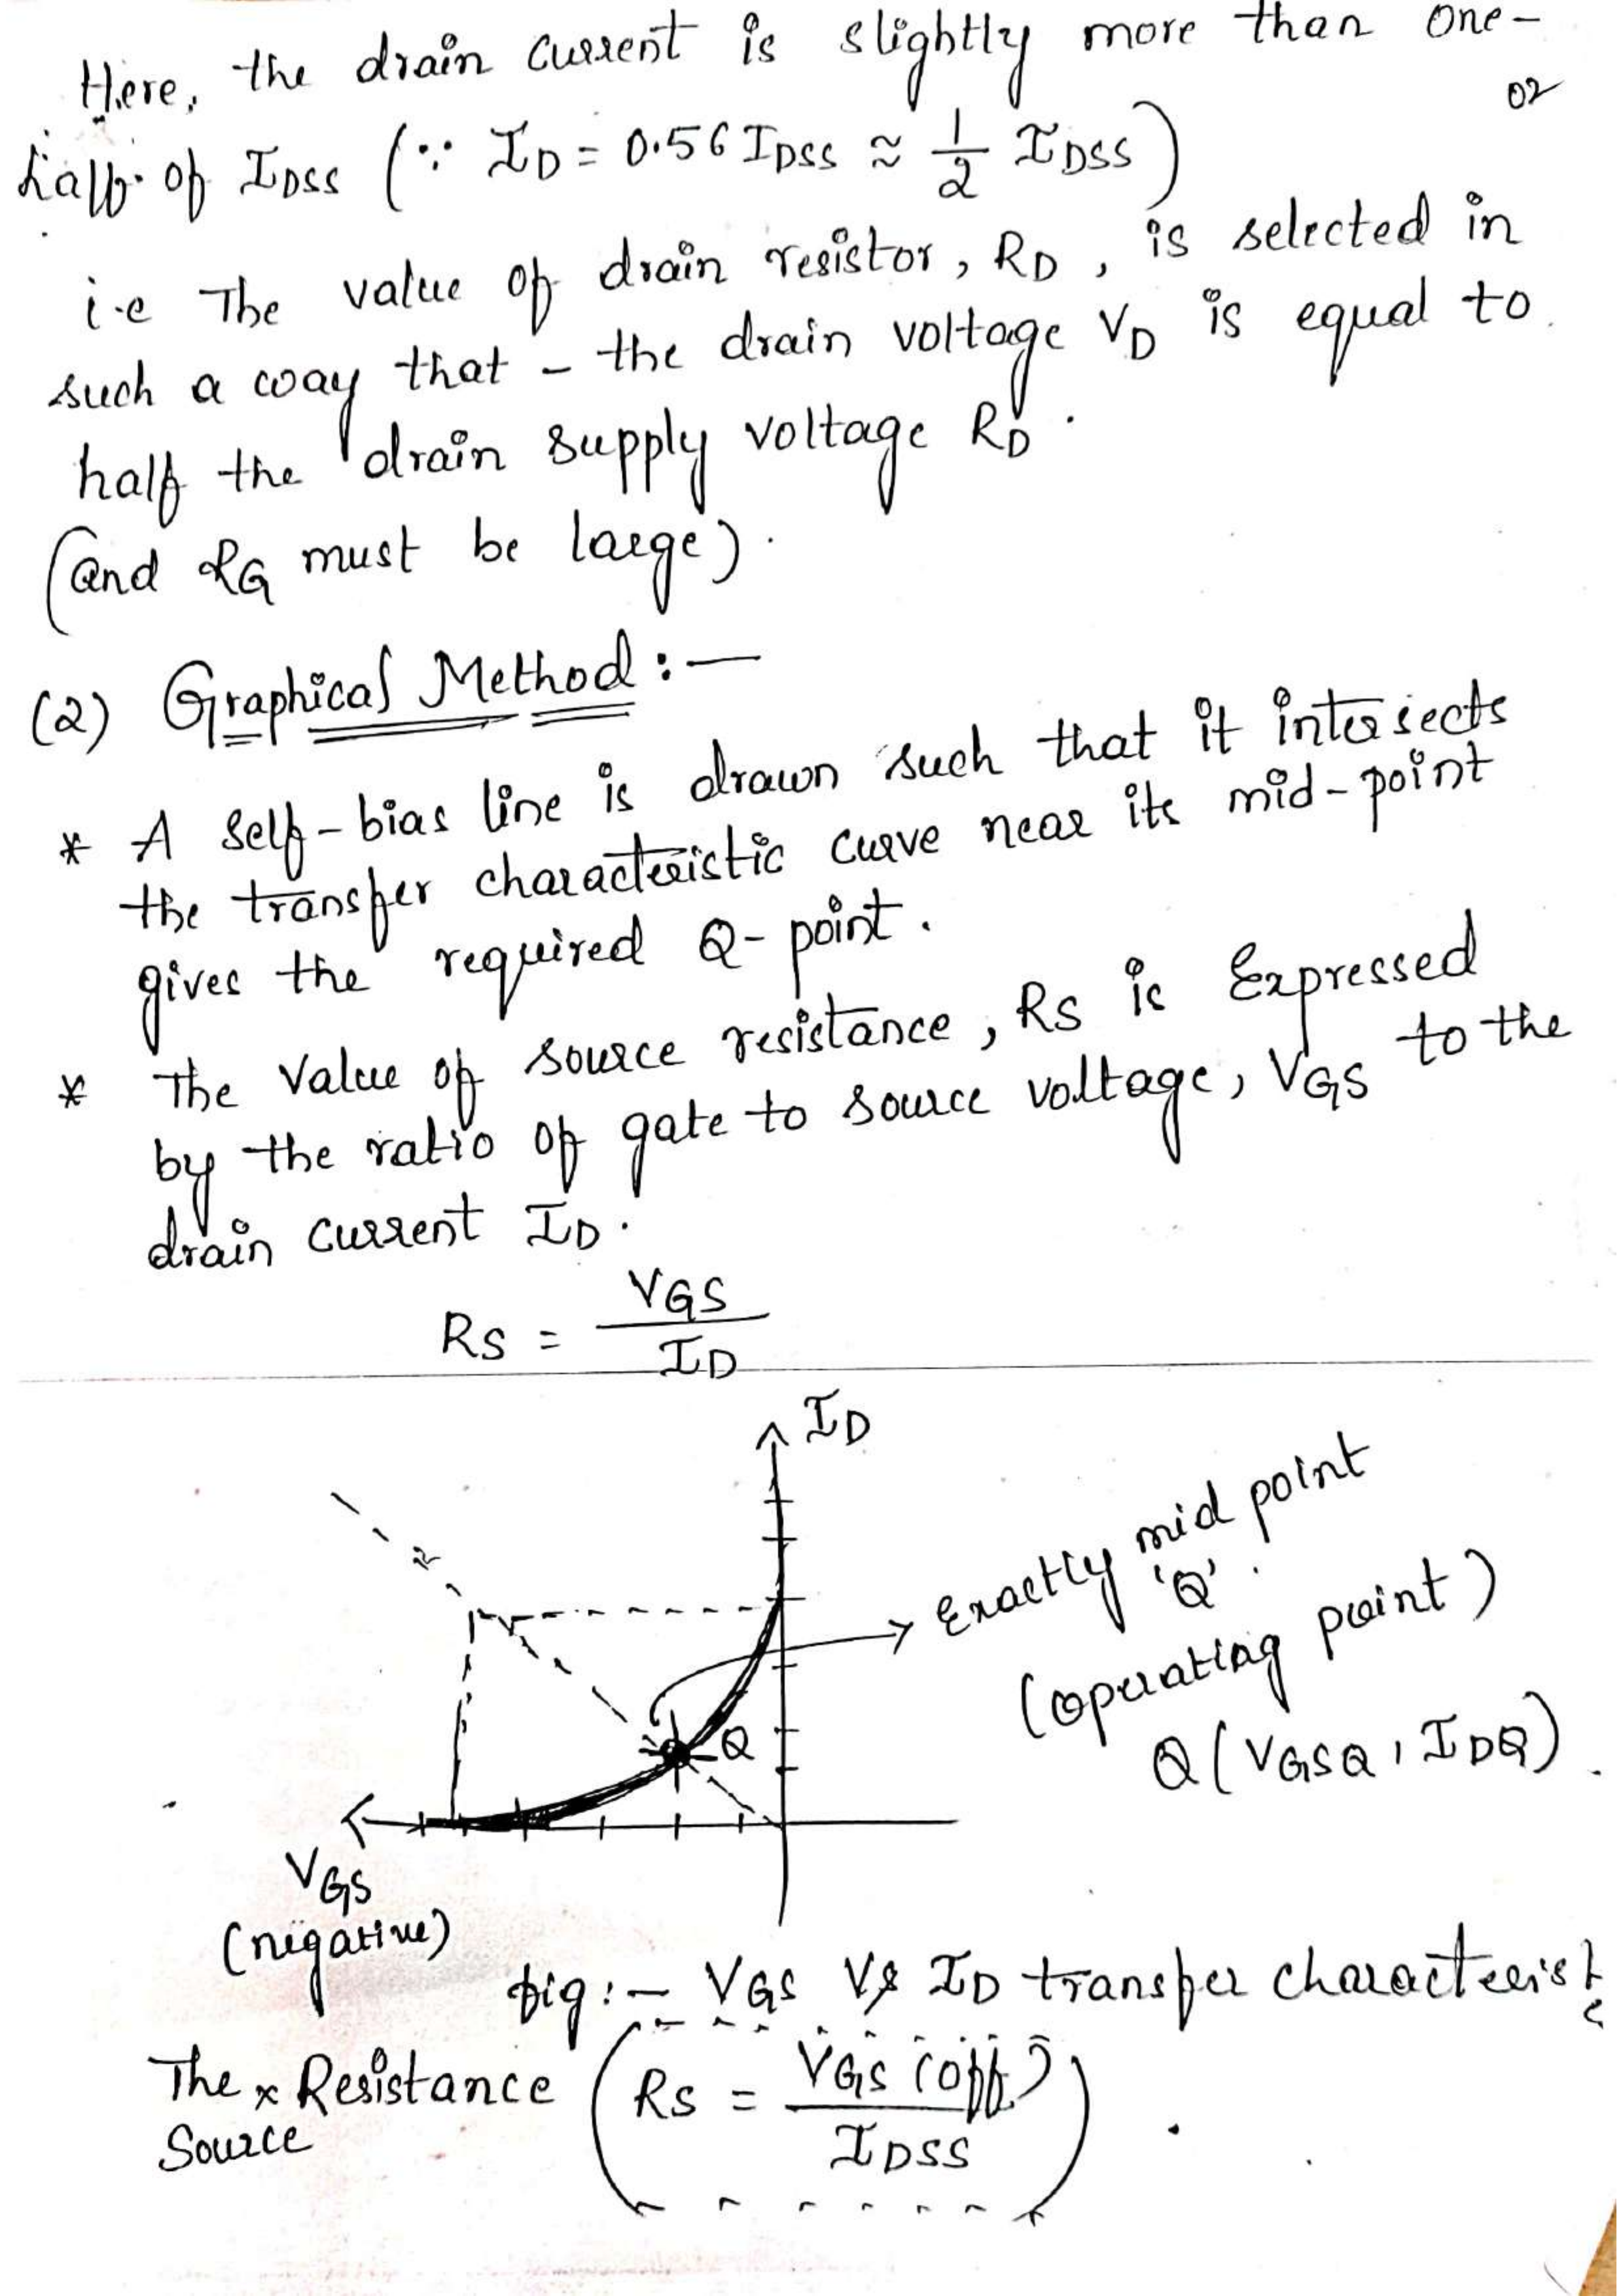 Here, the drain current is slightly more than one-
02
half of IDSS (∵ ID = 0.56 IDSS ≈ 1/2 IDSS)
i.e The value of drain resistor, RD, is selected in
such a way that - the drain voltage VD is equal to.
half the drain supply voltage RD.
(and RG must be large).
(2) Graphical Method :-
* A Self-bias line is drawn such that it intersects
the transfer characteristic curve near its mid-point
gives the required Q-point.
* The Value of source resistance, RS is Expressed
by the ratio of gate to source voltage, VGS to the
drain current ID.
RS = VGS / ID
ID
Exactly mid point
'Q'.
(operating point)
Q (VGSQ, IDQ).
Q
VGS
(negative)
fig :- VGS Vs ID transfer characterist
The x Resistance (RS = VGS (off) / IDSS).
Source